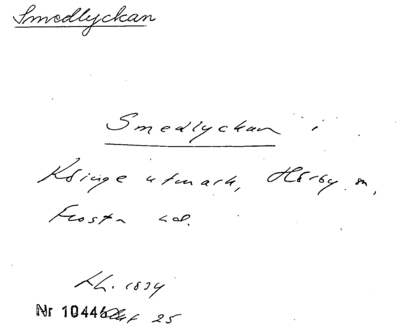 Smedlyckan
Smedlyckan i
Köinge utmark, Hörby sn,
Frosta hd.
Lh. 1834
Nr 10446 Akt 25